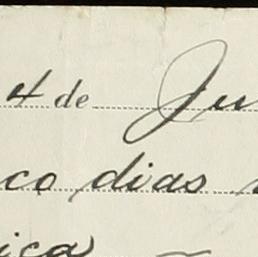 4 de Ju
co dias
ica